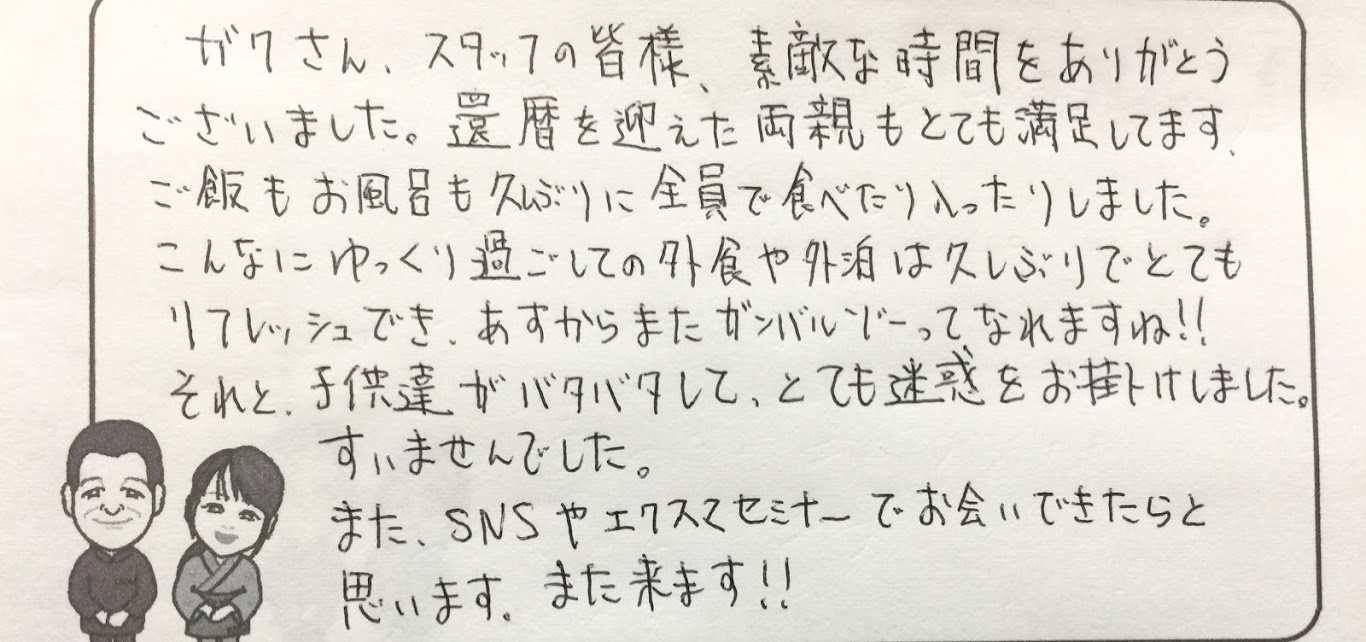 ガクさん、スタッフの皆様、素敵な時間をありがとう
ございました。還暦を迎えた両親もとても満足してます、
ご飯もお風呂も久しぶりに全員で食べたり入ったりしました。
こんなにゆっくり過ごしての外食や外泊は久しぶりでとても
リフレッシュでき、あすからまたガンバルゾーってなれますね!!
それと、子供達がバタバタして、とても迷惑をお掛けしました。
すいませんでした。
また、SNSやエクスマセミナーでお会いできたらと
思います。また来ます!!